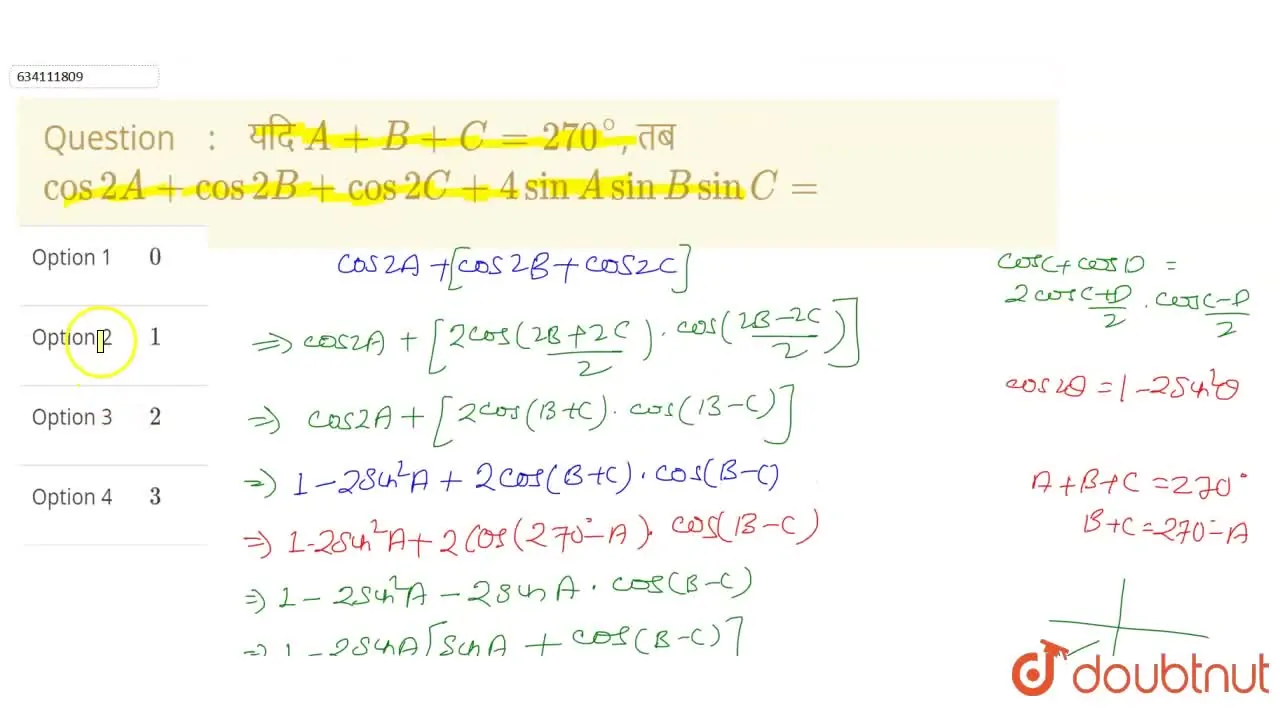 634111809
Question : यदि A + B + C = 270°, तब
cos 2A + cos 2B + cos 2C + 4 sin A sin B sin C =
Option 1 0
Option 2 1
Option 3 2
Option 4 3
cos2A + [cos2B + cos2C]
⇒ cos2A + [2cos(2B+2C/2) · cos(2B-2C/2)]
⇒ cos2A + [2cos(B+C) · cos(B-C)]
⇒ 1 - 2sin²A + 2cos(B+C) · cos(B-C)
⇒ 1-2sin²A + 2cos(270°-A) · cos(B-C)
⇒ 1 - 2sin²A - 2sinA · cos(B-C)
⇒ 1 - 2sinA [sinA + cos(B-C)]
cosC + cosD =
2cosC+D/2 · cosC-D/2
cos2θ = 1-2sin²θ
A+B+C = 270°
B+C = 270°-A
doubtnut